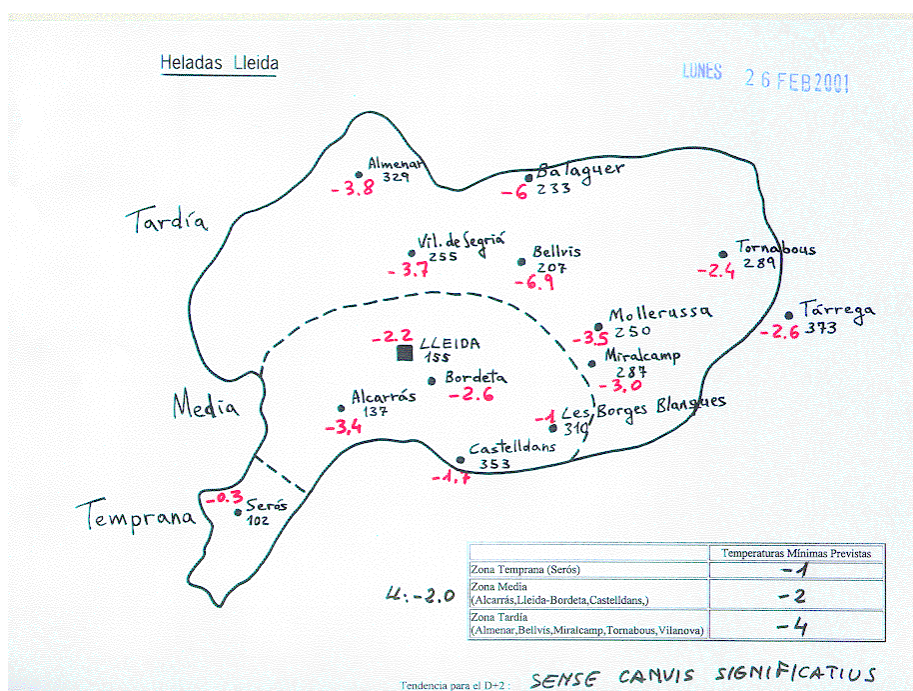 Heladas Lleida
LUNES 26 FEB 2001
Almenar
329
-3.8
Balaguer
233
-6
Tardía
Vil. de Segriá
255
-3.7
Bellvis
207
-6.9
Tornabous
289
-2.4
Mollerussa
250
-3.5
Tárrega
373
-2.6
-2.2
LLEIDA
155
Miralcamp
287
-3,0
Bordeta
-2.6
Media
Alcarrás
137
-3,4
-1
Les Borges Blanques
310
Castelldans
353
-1,7
-0.3
Serós
102
Temprana
Temperaturas Mínimas Previstas
Zona Temprana (Serós)
-1
Zona Media
(Alcarrás,Lleida-Bordeta,Castelldans,)
-2
Zona Tardía
(Almenar,Bellvís,Miralcamp,Tornabous,Vilanova)
-4
Ll:-2.0
Tendencia para el D+2 : SENSE CANVIS SIGNIFICATIUS